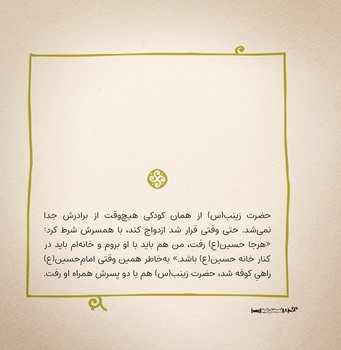 حضرت زینب(س) از همان کودکی هیچ‌وقت از برادرش جدا
نمی‌شد. حتی وقتی قرار شد ازدواج کند، با همسرش شرط کرد:
«هرجا حسین(ع) رفت، من هم باید با او بروم و خانه‌ام باید در
کنار خانه حسین(ع) باشد.» به‌خاطر همین وقتی امام‌حسین(ع)
راهیِ کوفه شد، حضرت زینب(س) هم با دو پسرش همراه او رفت.